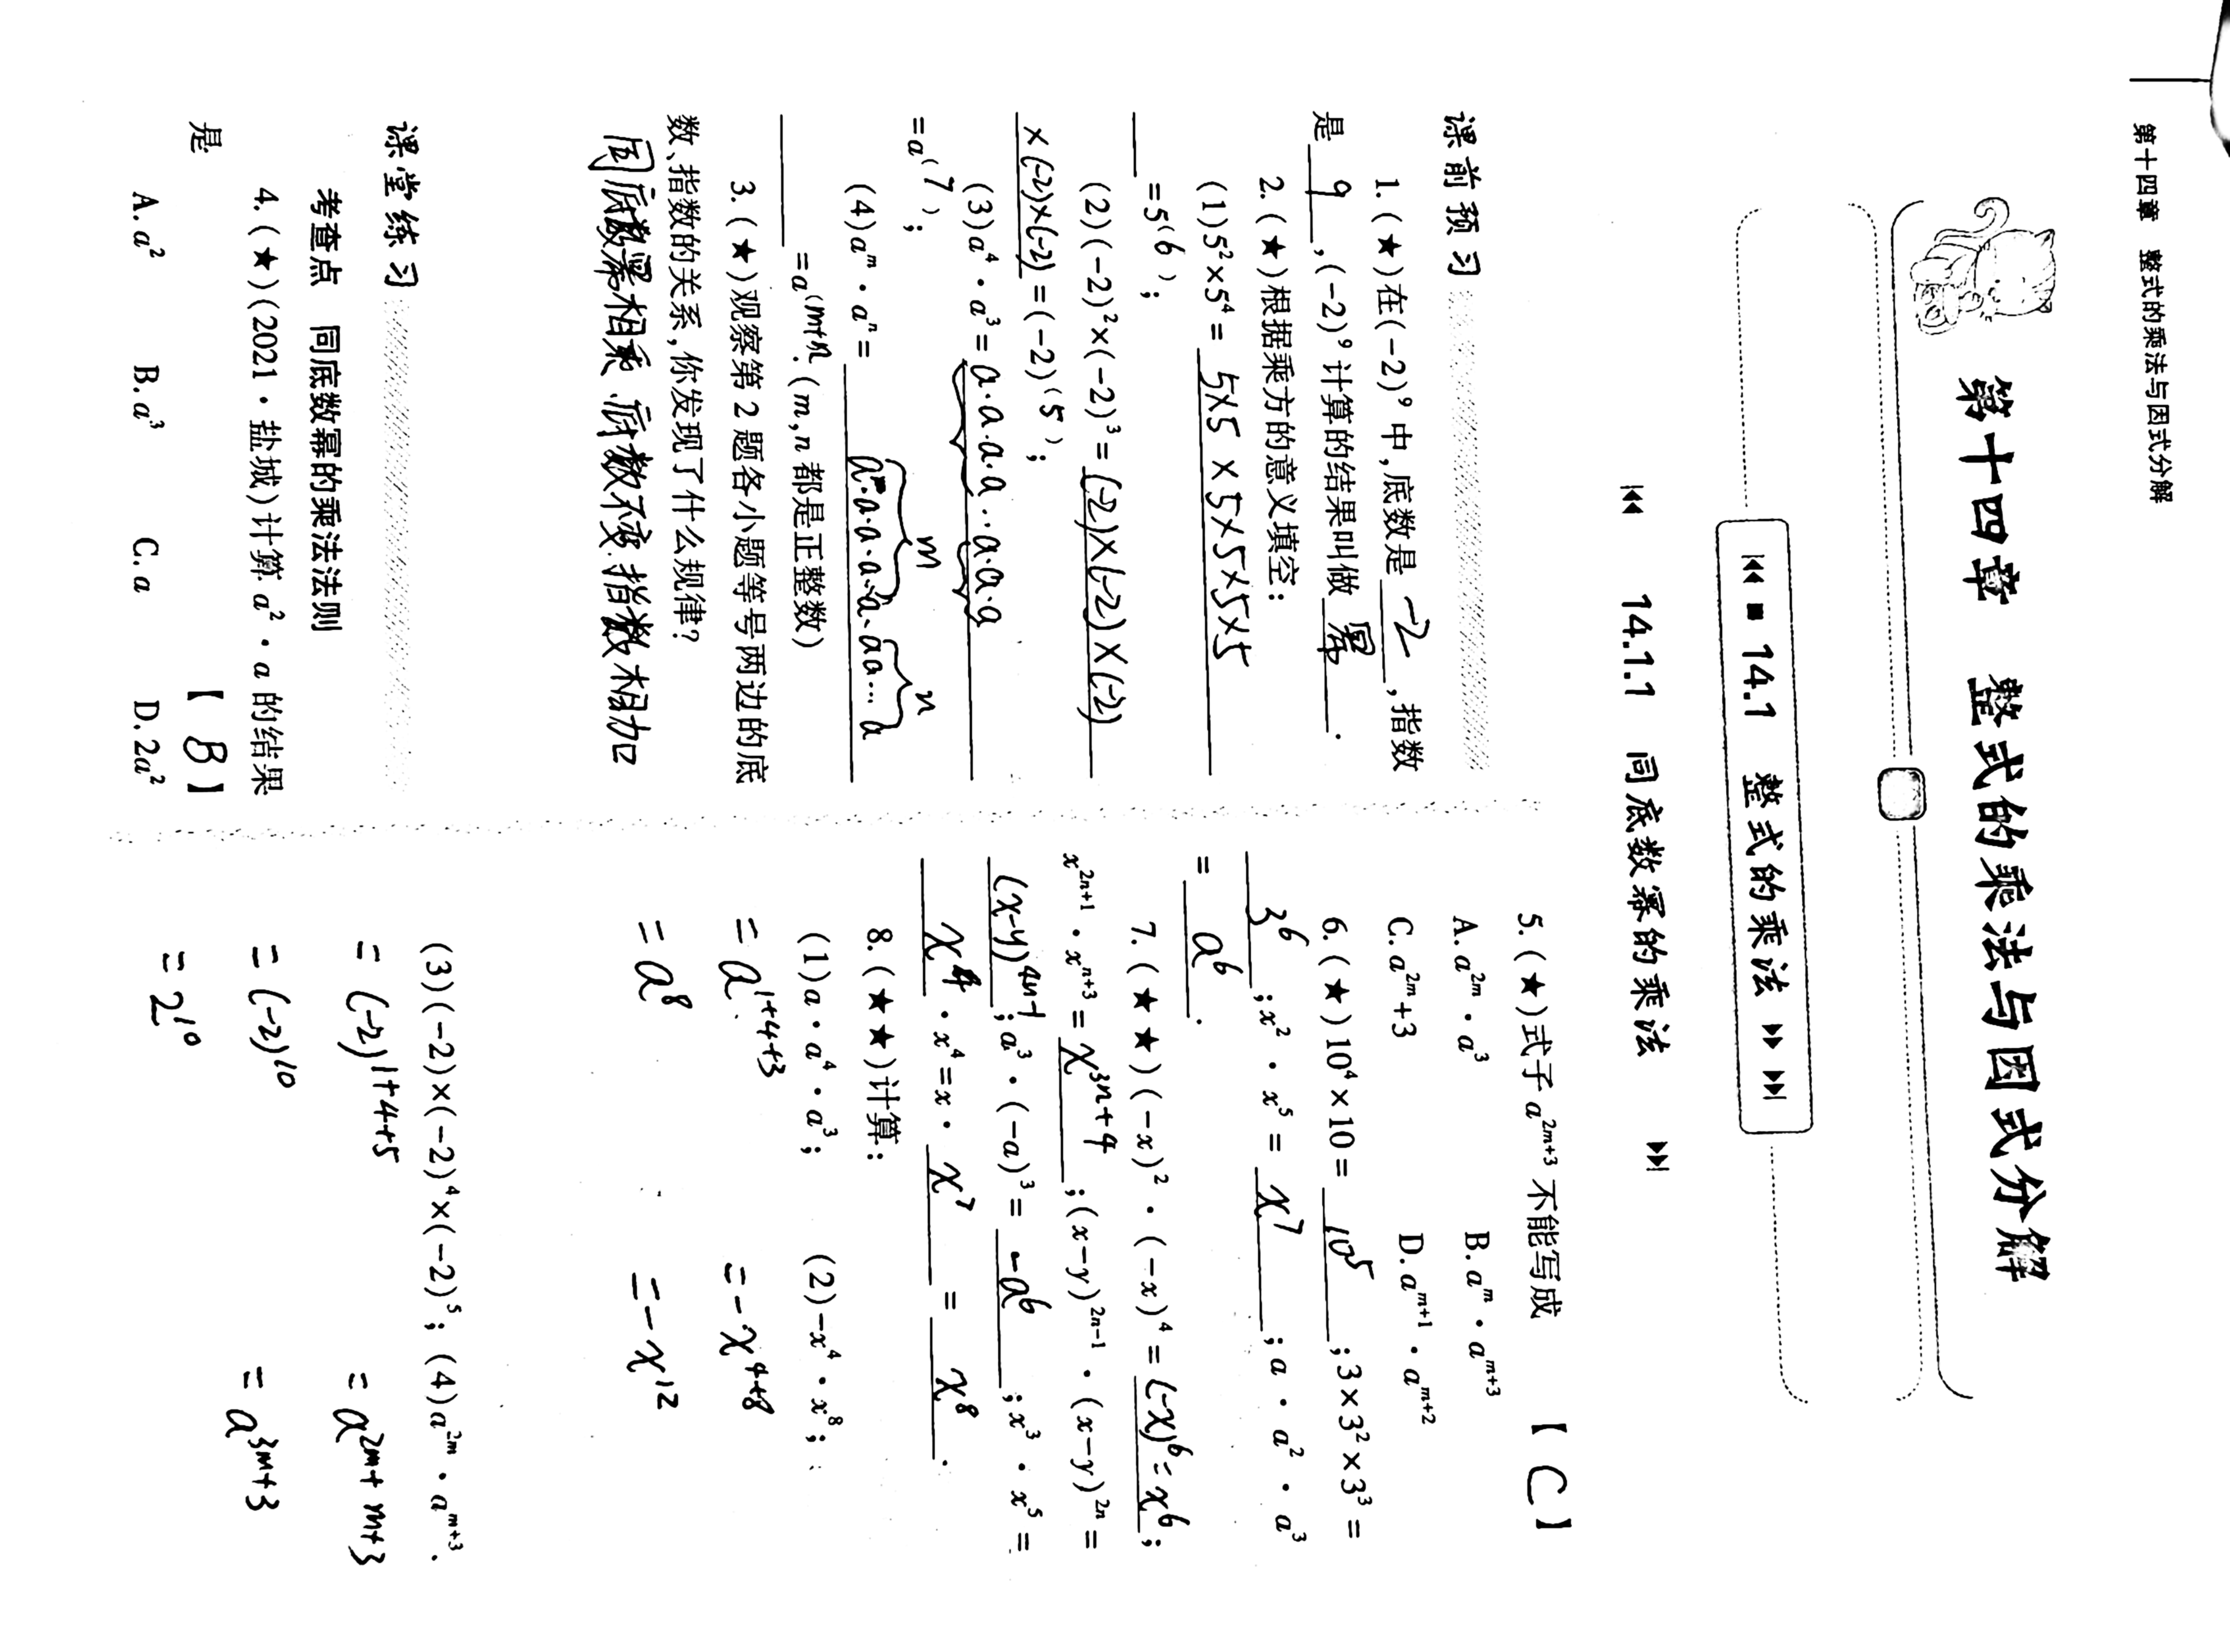 第十四章 整式的乘法与因式分解
第十四章 整式的乘法与因式分解
14.1 整式的乘法
14.1.1 同底数幂的乘法
课前预习
1.(★)在(-2)⁹中,底数是 -2 ,指数
是 9 ,(-2)⁹计算的结果叫做 幂 .
2.(★)根据乘方的意义填空:
(1)5²×5⁴= 5×5×5×5×5×5
=5^( 6 );
(2)(-2)²×(-2)³= (-2)×(-2)×(-2)
×(-2)×(-2) =(-2)^( 5 );
(3)a⁴·a³= a·a·a·a··a·a·a
=a^( 7 );
m n
(4)aᵐ·aⁿ= a·a·a·a·a·aa…a
=a^(m+n).(m,n都是正整数)
3.(★)观察第2题各小题等号两边的底
数、指数的关系,你发现了什么规律?
同底数幂相乘,底数不变,指数相加
课堂练习
考查点 同底数幂的乘法法则
4.(★)(2021·盐城)计算a²·a的结果
是 【 B 】
A.a² B.a³ C.a D.2a²
5.(★)式子a^(2m+3)不能写成 【 C 】
A.a^(2m)·a³ B.a^m·a^(m+3)
C.a^(2m)+3 D.a^(m+1)·a^(m+2)
6.(★)10⁴×10= 10⁵ ;3×3²×3³=
3⁶ ;x²·x⁵= x⁷ ;a·a²·a³
= a⁶ .
7.(★★)(-x)²·(-x)⁴= (-x)⁶=x⁶ ;
x^(2n+1)·x^(n+3)= x^(3n+4) ;(x-y)^(2n-1)·(x-y)^(2n)=
(x-y)^(4n-1) ;a³·(-a)³= -a⁶ ;x³·x⁵=
x⁴ ·x⁴=x· x⁷ = x⁸ .
8.(★★)计算:
(1)a·a⁴·a³; (2)-x⁴·x⁸;
=a^(1+4+3) =-x^(4+8)
=a⁸ =-x¹²
(3)(-2)×(-2)⁴×(-2)⁵; (4)a^(2m)·a^(m+3).
=(-2)^(1+4+5) =a^(2m+m+3)
=(-2)¹⁰ =a^(3m+3)
=2¹⁰